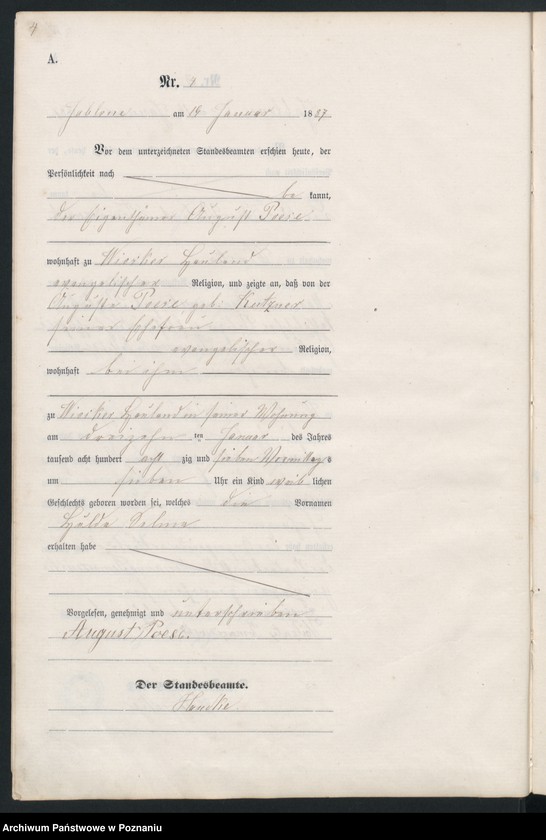 4
A.
Nr. 9.
Jablone am 14 Januar 1887
Vor dem unterzeichneten Standesbeamten erschien heute, der
Persönlichkeit nach
be kannt,
der Eigenthümer August Poese
wohnhaft zu Hauland
evangelischer Religion, und zeigte an, daß von der
Auguste Poese geb. Kutzner
seiner Ehefrau
evangelischer Religion,
wohnhaft bei ihm
zu Hauland in seiner Wohnung
am dreizehn ten Januar des Jahres
tausend acht hundert acht zig und sieben Vormittag s
um sieben Uhr ein Kind weib lichen
Geschlechts geboren worden sei, welches die Vornamen
Hulda Selma
erhalten habe
Vorgelesen, genehmigt und unterschrieben
August Poese.
Der Standesbeamte.
Archiwum Państwowe w Poznaniu